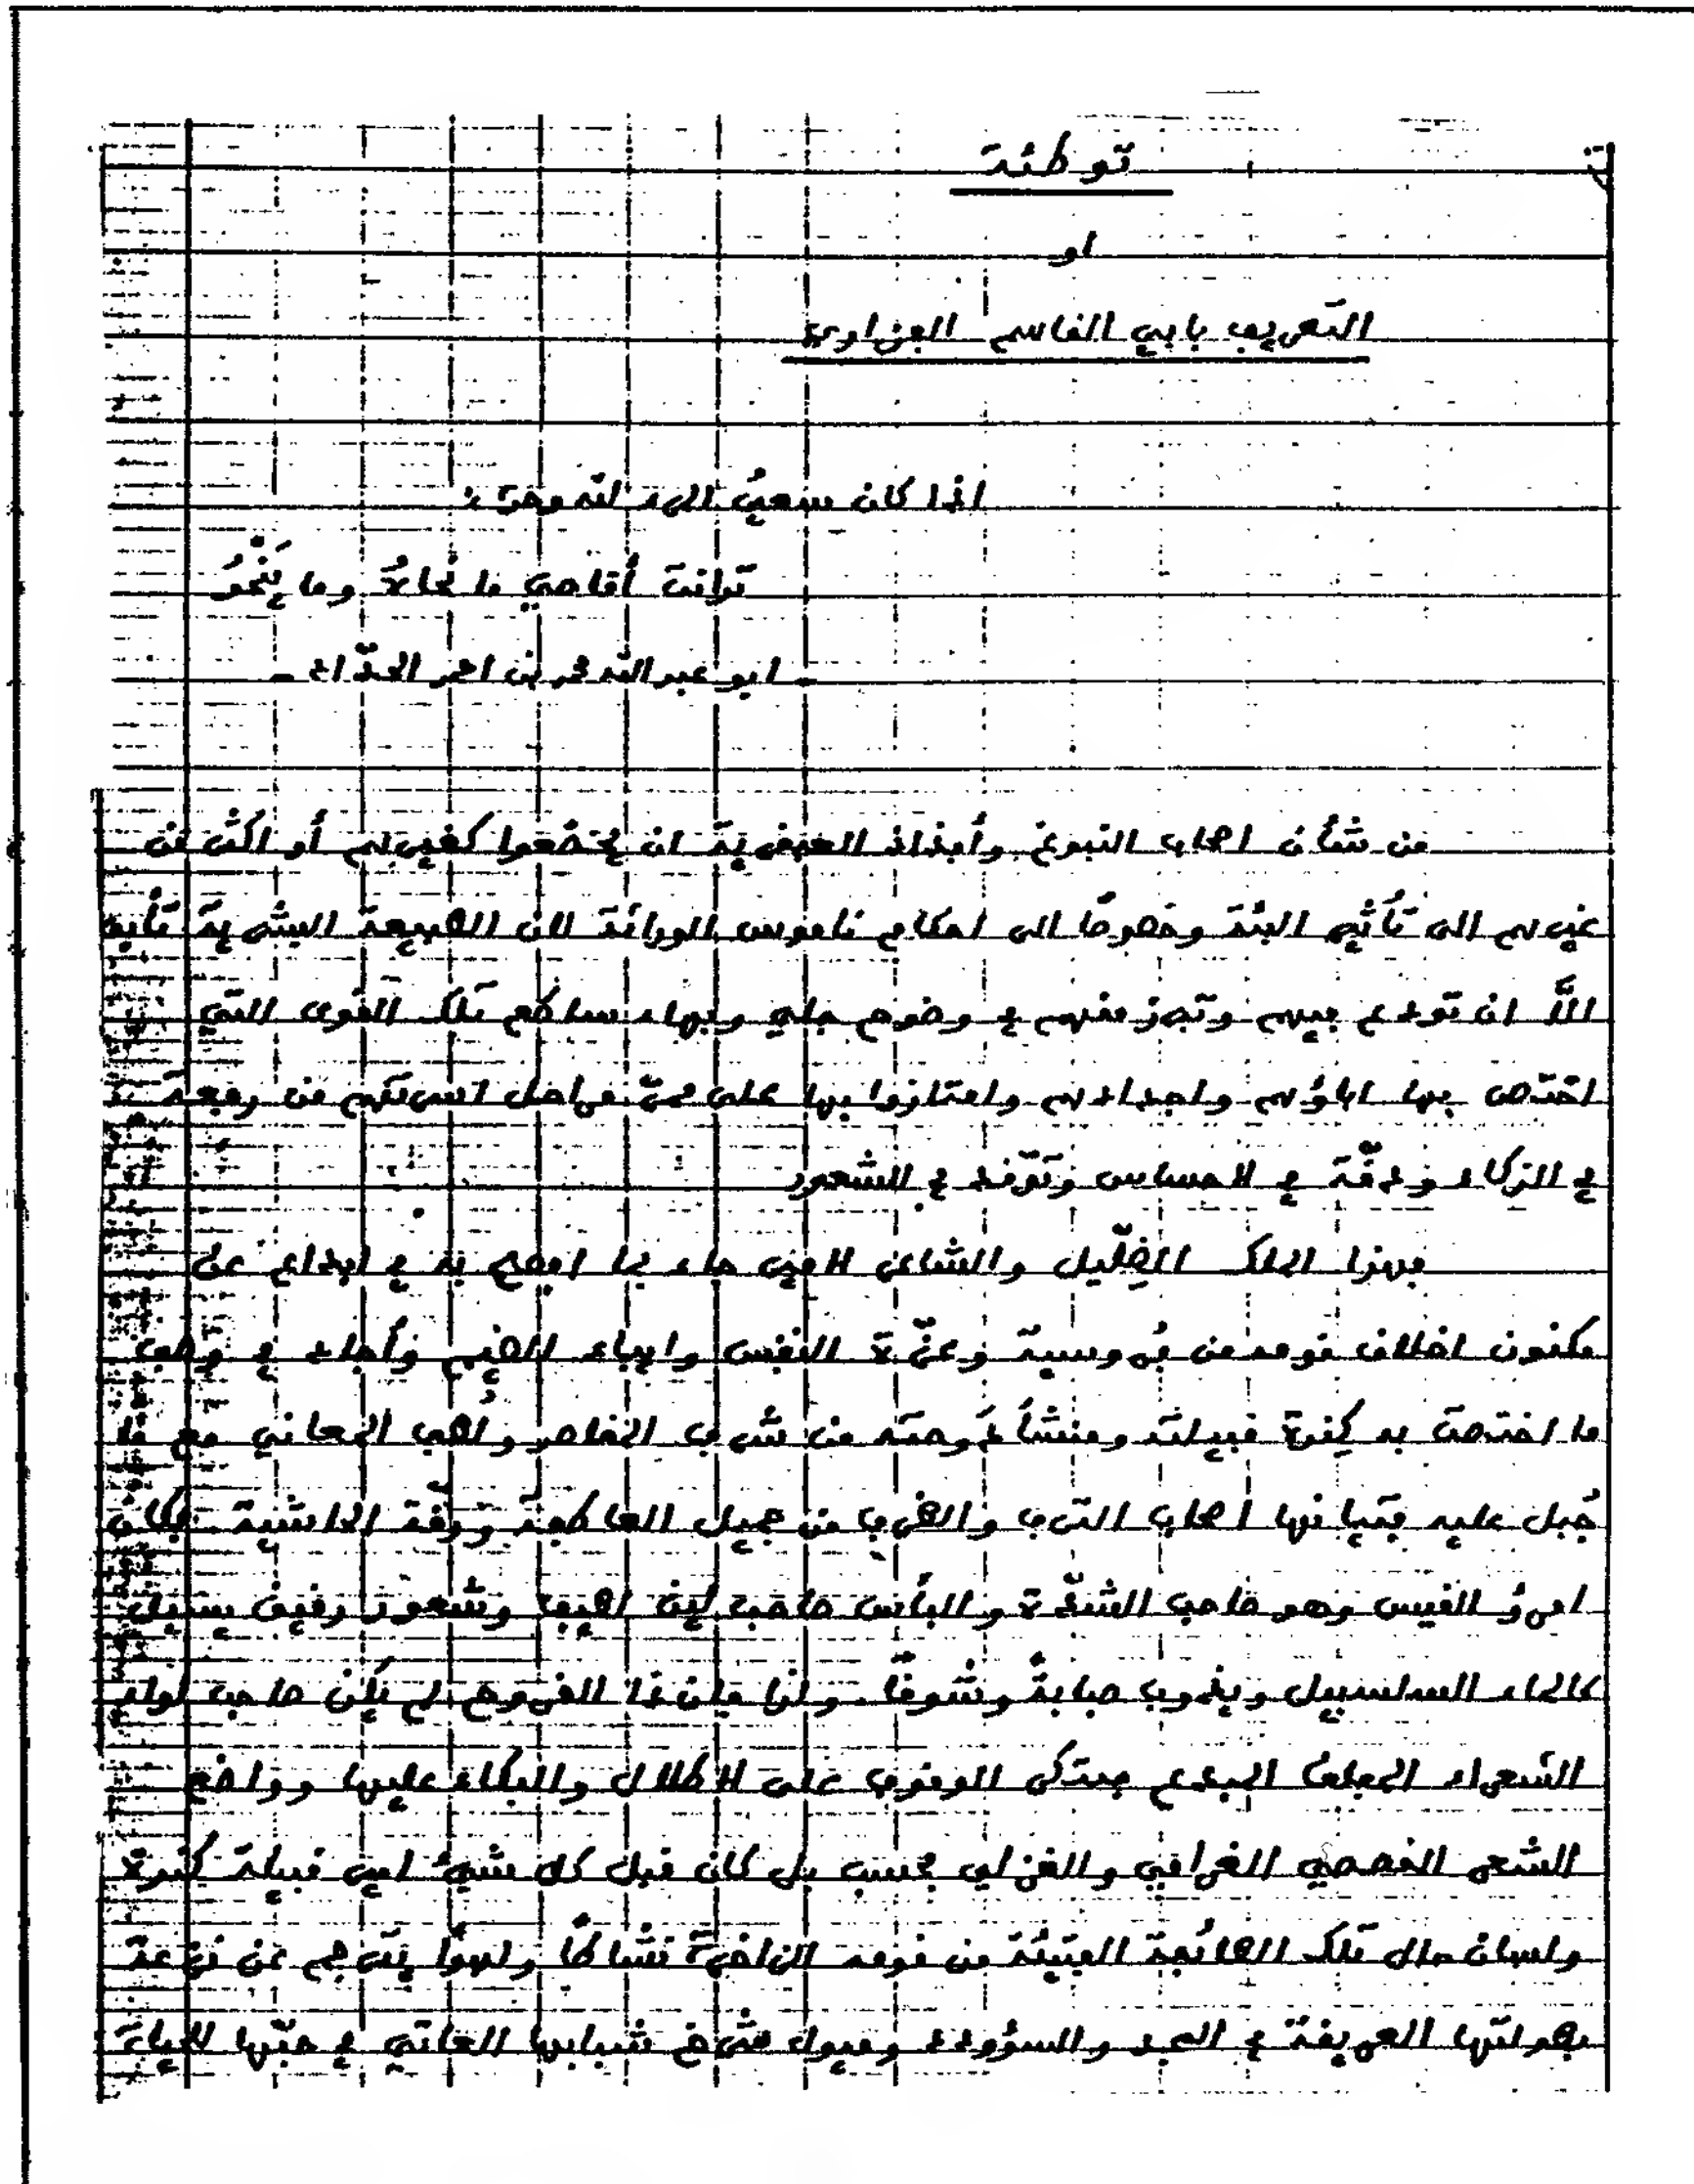 توطئة
او
التعريف بابي القاسم الفزاوي
اذا كان سعيُ المرء لله وحدة
تدانت أقاصي ما نحاهُ وما ينحُو
- ابو عبد الله محمد بن احمد الحدّاد -
من شأن اصحاب النبوغ وأفذاذ العبقرية ان يخضعوا كغيرهم أو اكثر من
غيرهم الى تأثير البئة وخصوصًا الى احكام ناموس الوراثة لان الطبيعة البشرية تأبى
الاَّ ان تودع فيهم وتبرز منهم في وضوح جلي وبهاء ساطع تلك القوى التي
اختص بها اباؤهم واجدادهم وامتازوا بها على ممرّ مراحل من رفعة
في الذكاء ودقّة في الاحساس وتوقّد في الشعور
فهذا الملك الضِّلِّيل والشاعر الامير جاء بما افصح به في ابداع عن
مكنون اخلاق قومه من فُروسية وعزّة النفس واباء الضيم وأجاد في وصف
ما اختصت به كِندة قبيلته ومنشأ دوحته من شرف المقاصد ولُطف المعاني مع ما
جُبل عليه فتيانها اصحاب الترف والظرف من جميل العاطفة ورقّة الحاشية فكان
امرؤُ القيس وهو صاحب الشدّة والبأس صاحب لين لطيف وشعور رقيق يسيل
كالماء السلسبيل ويذوب صبابةً وشوقًا. ولذا فإن ذا القروح لم يكن صاحب لواء
الشعراء المجلي المبدع مبتكر الوقوف على الاطلال والبكاء عليها وواضع
الشعر القصصي الغرامي والغزلي فحسب بل كان قبل كل شيئ امير قبيلة كندة
ولسان حال تلك الطائفة الفتيّة من قومه الزاخرة نشاطًا ولهوًا يترجم عن نزعة
بطولتها العريقة في المجد والسؤودد وميول شرخ شبابها العاتي في حبّها للحياة